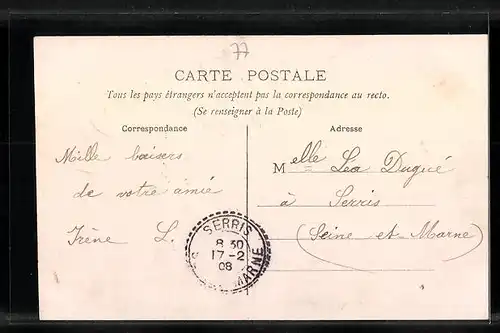 77
CARTE POSTALE
Tous les pays étrangers n'acceptent pas la correspondance au recto.
(Se renseigner à la Poste)
Correspondance
Mille baisers
de votre amie
Irène L.
Adresse
Melle Léa Dugué
à Serris
(Seine et Marne)
SERRIS
8 30
17-2
08
MARNE